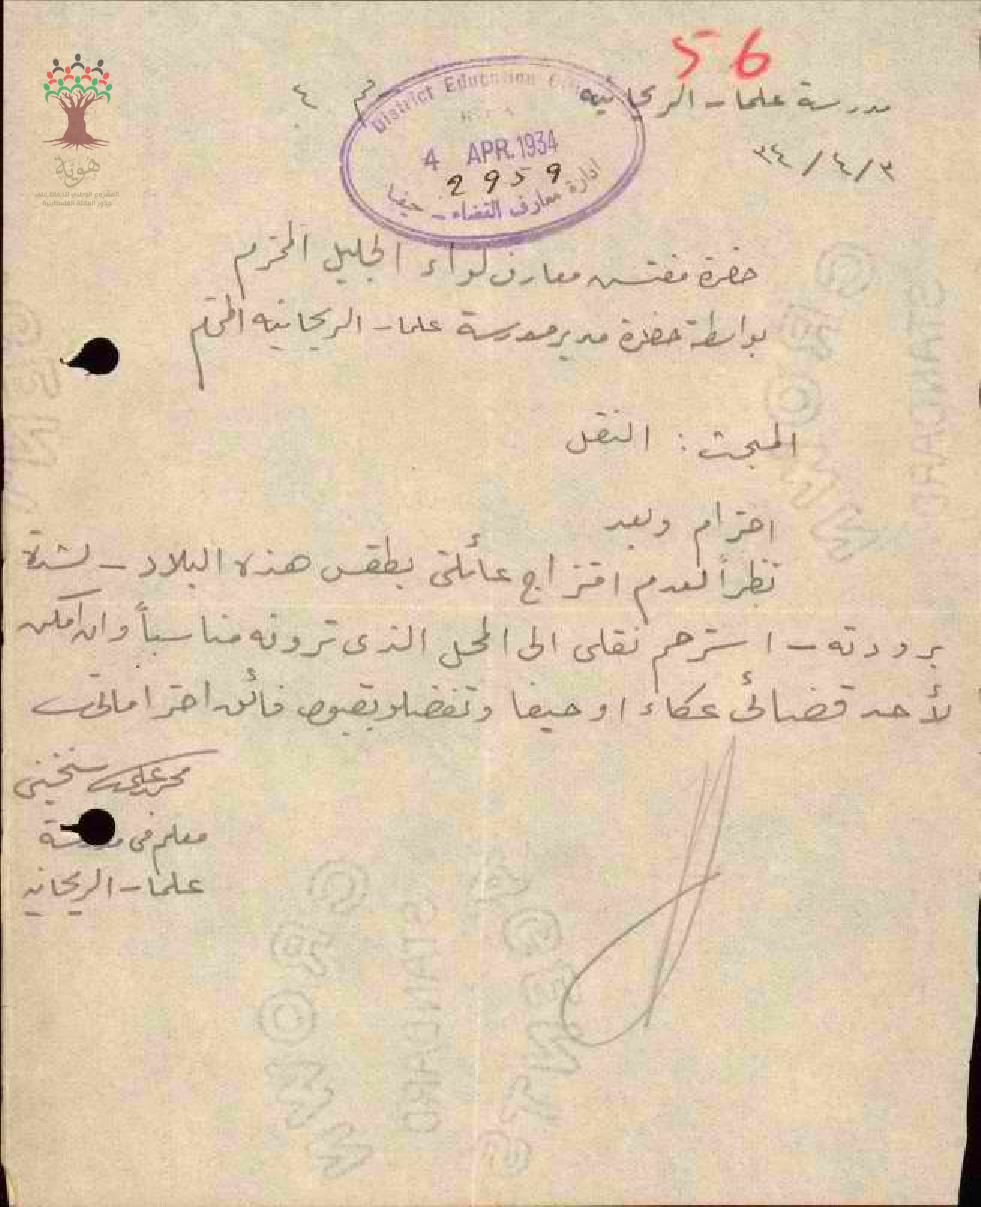 56
مدرسة علما - الريحانيه
نم ٤
٣ / ٤ / ٣٤
District Education
4 APR. 1934
2959
ادارة معارف القضاء - حيفا
هوية
المشروع الوطني للحفاظ على
جذور العائلة الفلسطينية
حضرة مفتش معارف لواء الجليل المحترم
بواسطة حضرة مدير مدرسة علما - الريحانيه المحترم
المبحث : النقل
احترام وبعد
نظراً لعدم امتزاج عائلتي بطقس هذه البلاد - لشدة
برودته - استرحم نقلي الى المحل الذي ترونه مناسباً وان امكن
لأحد قضائي عكاء او حيفا وتفضلو بقبول فائق احتراماتي
محمد علي سخنيني
معلم في مدرسة
علما - الريحانيه
CROWN
STANDARD
AGENTS